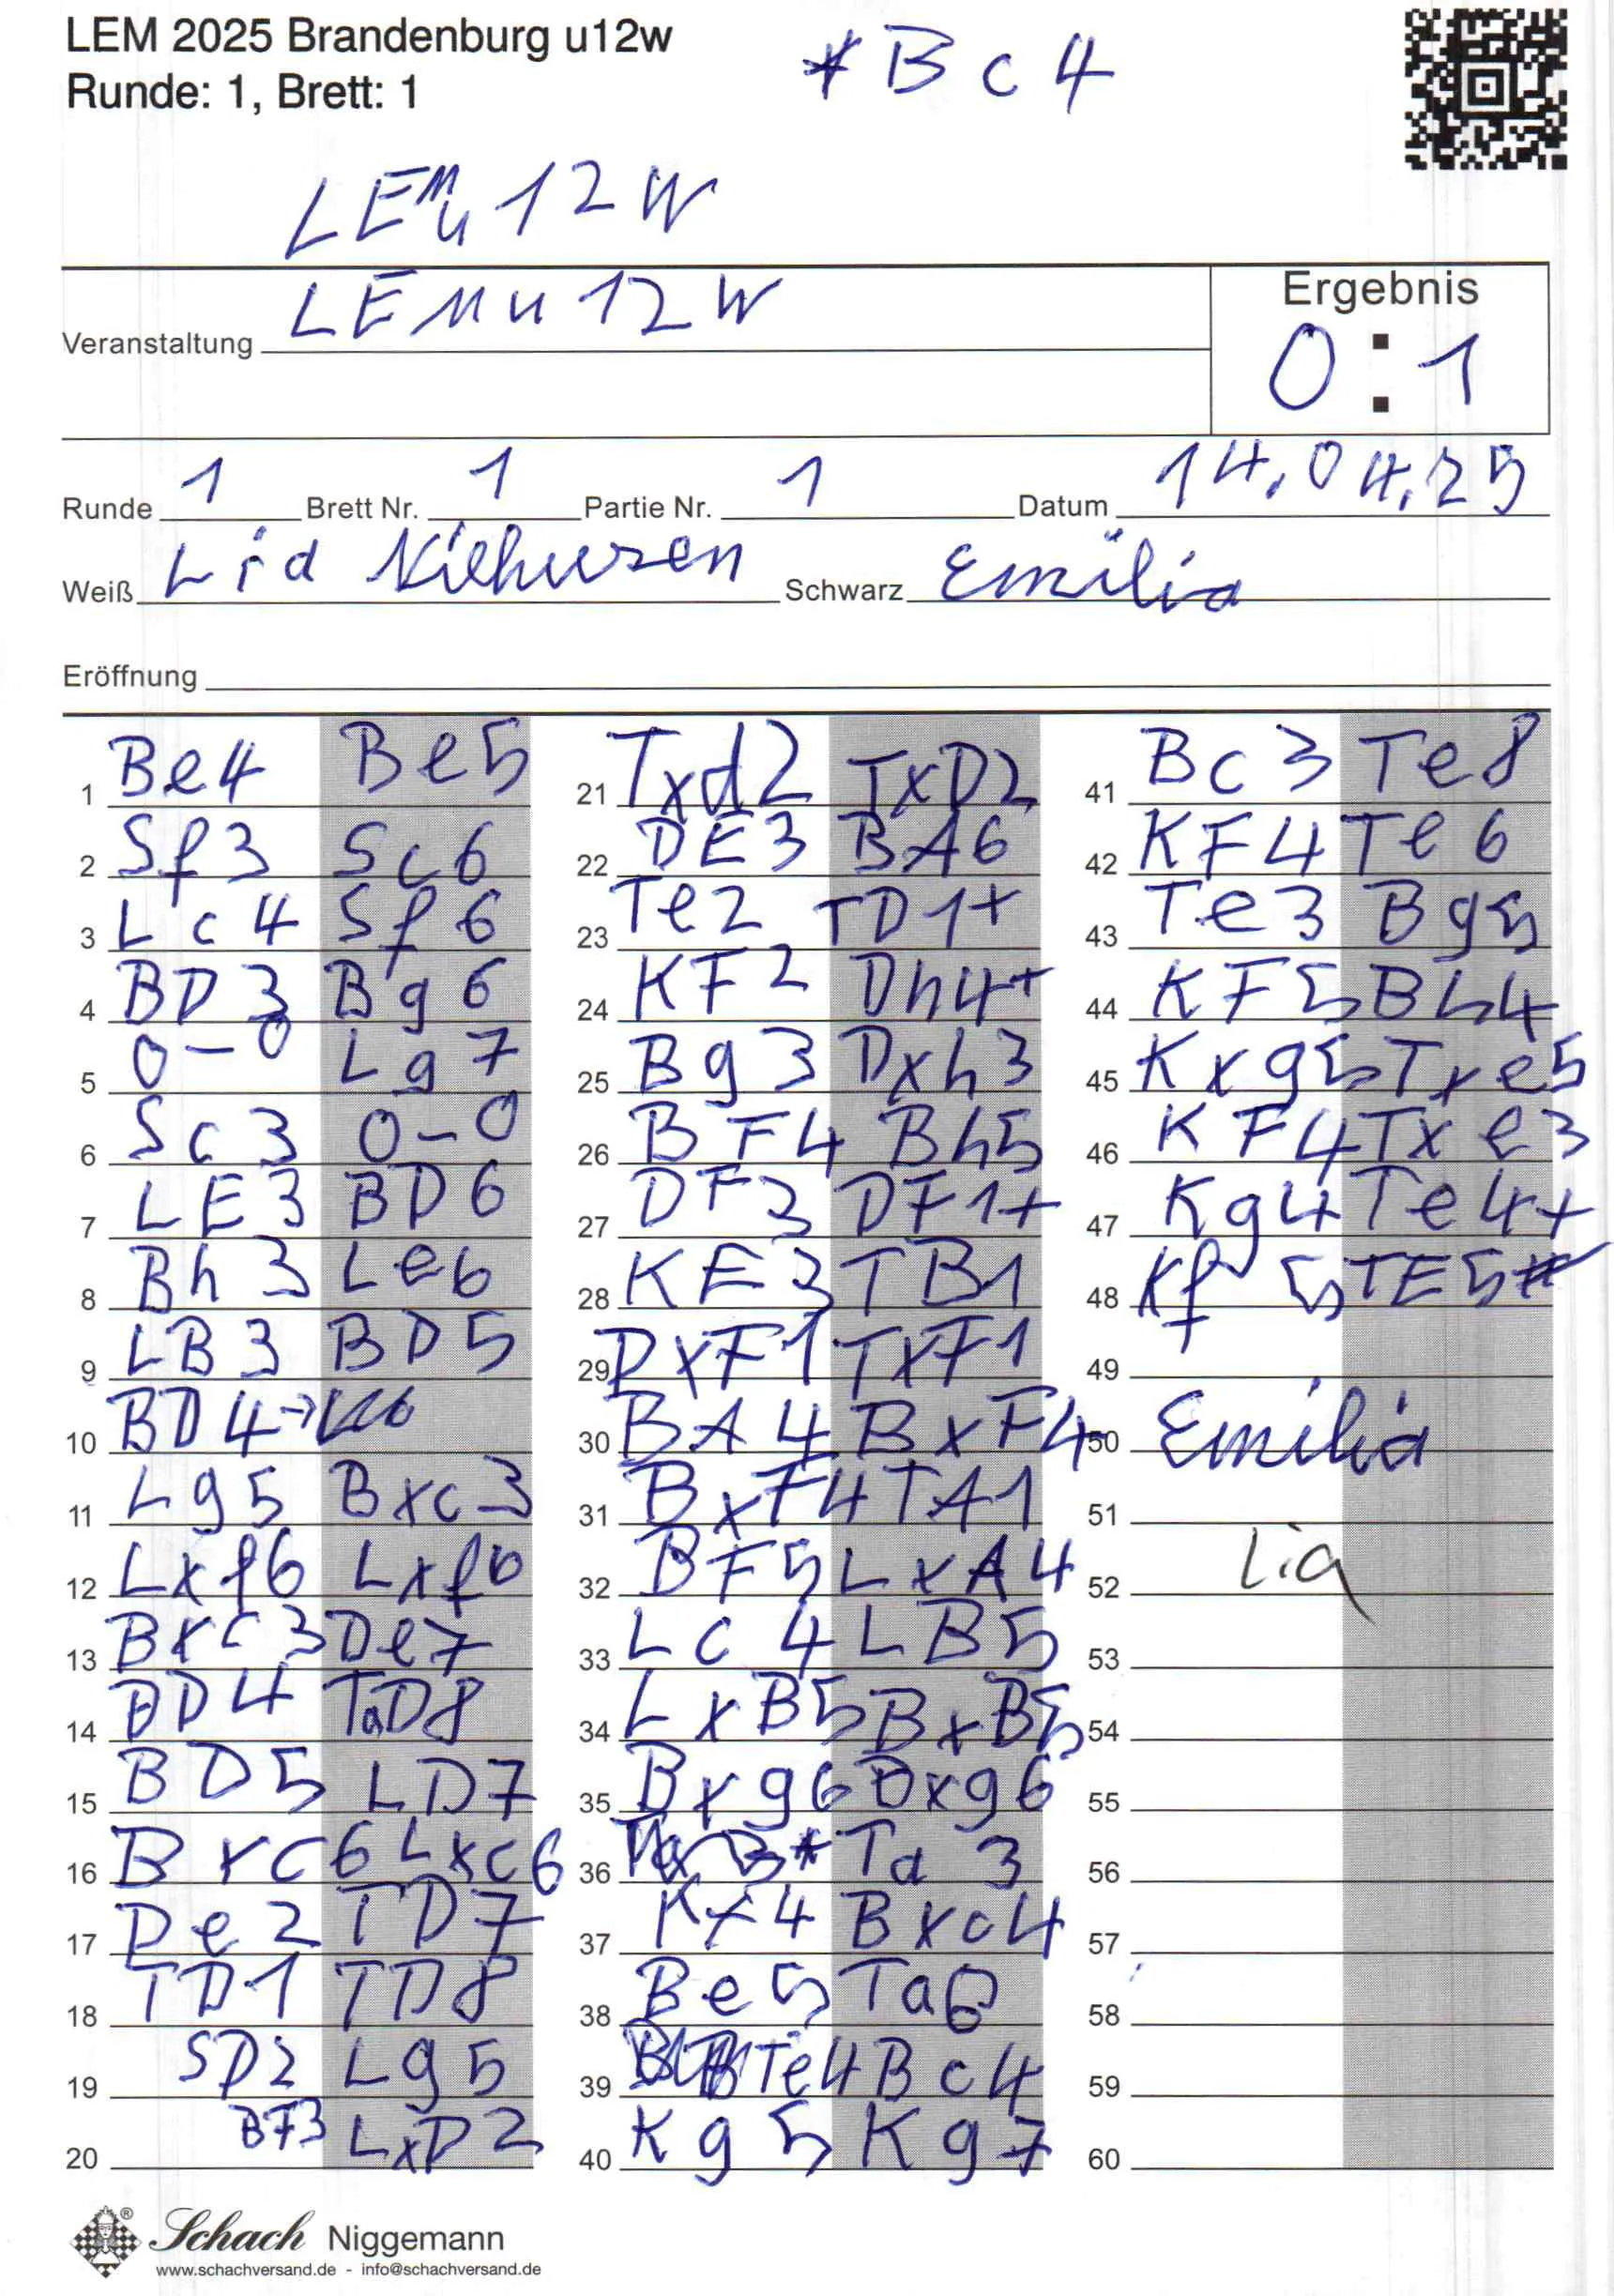 LEM 2025 Brandenburg u12w
Runde: 1, Brett: 1
*Bc4
LEMu12W
LEMu12W
Veranstaltung
Ergebnis
0:1
Runde 1 Brett Nr. 1 Partie Nr. 1 Datum 14.04.25
Weiß Schwarz Emilia
Eröffnung
1 Be4 Be5
2 Sf3 Sc6
3 Lc4 Sf6
4 BD3 Bg6
5 0-0 Lg7
6 Sc3 0-0
7 LE3 BD6
8 Bh3 Le6
9 LB3 BD5
10 BD4→
11 Lg5 Bxc3
12 Lxf6 Lxf6
13 Bxc3 De7
14 BD4 TaD8
15 BD5 LD7
16 Bxc6 Lxc6
17 De2 TD7
18 TD1 TD8
19 SD2 Lg5
20 BF3 LxD2
21 Txd2 TxD2
22 DE3 BA6
23 Te2 TD1+
24 KF2 Dh4+
25 Bg3 Dxh3
26 BF4 Bh5
27 DF3 DF1+
28 KE3 TB1
29 DxF1 TxF1
30 BA4 BxF4
31 BxF4 TA1
32 BF5 LxA4
33 Lc4 LB5
34 LxB5 BxB5
35 Bxg6 Bxg6
36 * Ta3
37 Kf4 Bxc4
38 Be5 Ta6
39 Te4 Bc4
40 Kg5 Kg7
41 Bc3 Te8
42 KF4 Te6
43 Te3 Bg5
44 KF5 Bh4
45 Kxg5 Txe5
46 KF4 Txe3
47 Kg4 Te4+
48 Kf5 TE5#
49
50 Emilia
51
52 Lia
53
54
55
56
57
58
59
60
Schach Niggemann
www.schachversand.de - info@schachversand.de